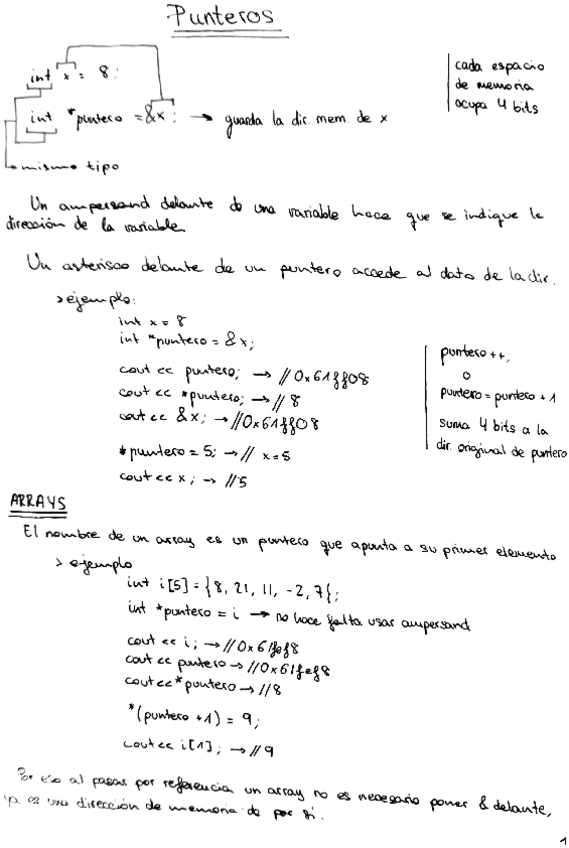 Punteros
int x = 8;
int *puntero = &x; → guarda la dir. mem. de x
mismo tipo
cada espacio
de memoria
ocupa 4 bits
Un ampersand delante de una variable hace que se indique la
dirección de la variable
Un asterisco delante de un puntero accede al dato de la dir.
> ejemplo:
int x = 8
int *puntero = &x;
cout << puntero; → // 0x61ff08
cout << *puntero; → // 8
cout << &x; → // 0x61ff08
*puntero = 5; → // x=5
cout << x; → // 5
puntero++,
o
puntero = puntero + 1
suma 4 bits a la
dir. original de puntero
ARRAYS
El nombre de un array es un puntero que apunta a su primer elemento
> ejemplo
int i[5] = {8, 21, 11, -2, 7};
int *puntero = i → no hace falta usar ampersand
cout << i; → // 0x61fef8
cout << puntero → // 0x61fef8
cout << *puntero → // 8
*(puntero + 1) = 9;
cout << i[1]; → // 9
Por eso al pasar por referencia un array no es necesario poner & delante,
ya es una dirección de memoria de por sí.
1